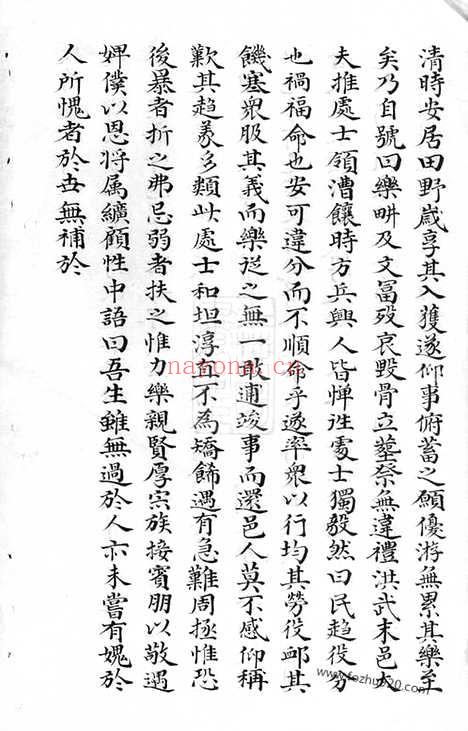 清時安居田野歲享其入獲遂仰事俯蓄之願優游無累其樂至
矣乃自號曰樂畊及文冨歿哀毀骨立塟祭無違禮洪武末邑大
夫推處士領漕饟時方兵興人皆憚徃處士獨毅然曰民趍役分
也禍福命也安可違分而不順命乎遂率衆以行均其勞役䘏其
饑寒衆服其義而樂從之無一敢逋竣事而還邑人莫不感仰稱
歎其趍義多類此處士和坦淳直不為矯餙遇有急難周拯惟恐
後暴者折之弗忌弱者扶之惟力樂親賢厚宗族接賓朋以敬遇
婢僕以恩将属纊顧性中語曰吾生雖無過於人亦未嘗有媿於
人所愧者於世無補於
nayona.cn
www.fozhu920.com